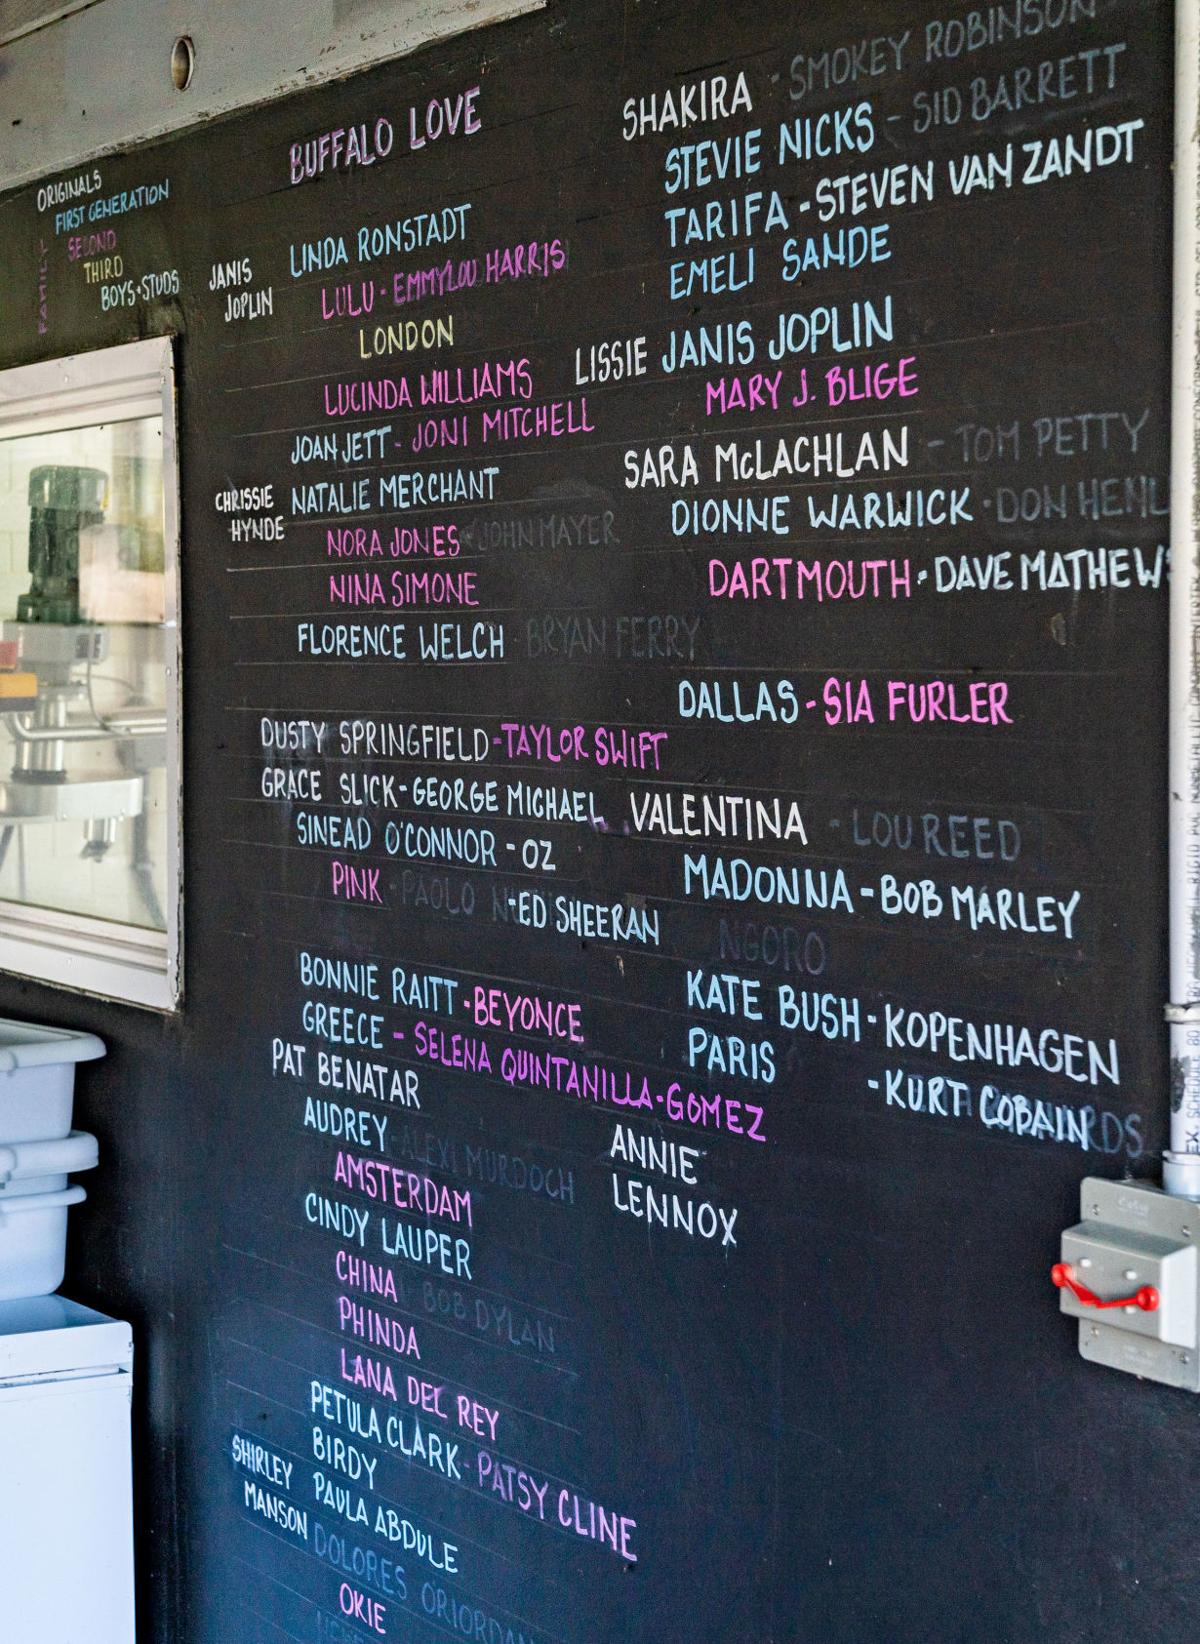 BUFFALO LOVE
ORIGINALS
FIRST GENERATION
SECOND
THIRD
BOYS+STUDS
FAMILY
JANIS
JOPLIN
LINDA RONSTADT
LULU - EMMYLOU HARRIS
LONDON
LUCINDA WILLIAMS
JOAN JETT - JONI MITCHELL
CHRISSIE
HYNDE
NATALIE MERCHANT
NORA JONES - JOHN MAYER
NINA SIMONE
FLORENCE WELCH BRYAN FERRY
DUSTY SPRINGFIELD - TAYLOR SWIFT
GRACE SLICK - GEORGE MICHAEL
SINEAD O'CONNOR - OZ
PINK - PAOLO - ED SHEERAN
BONNIE RAITT - BEYONCE
GREECE - SELENA QUINTANILLA - GOMEZ
PAT BENATAR
AUDREY - ALEXI MURDOCH
AMSTERDAM
CINDY LAUPER
CHINA BOB DYLAN
PHINDA
LANA DEL REY
PETULA CLARK - PATSY CLINE
BIRDY
SHIRLEY
MANSON
PAULA ABDULE
DOLORES ORIORDAN
OKIE
SHAKIRA - SMOKEY ROBINSON
STEVIE NICKS - SID BARRETT
TARIFA - STEVEN VAN ZANDT
EMELI SANDE
LISSIE JANIS JOPLIN
MARY J. BLIGE
SARA McLACHLAN - TOM PETTY
DIONNE WARWICK - DON HENL
DARTMOUTH - DAVE MATHEWS
DALLAS - SIA FURLER
VALENTINA - LOU REED
MADONNA - BOB MARLEY
NGORO
KATE BUSH - KOPENHAGEN
PARIS
- KURT COBAIN
ANNIE
LENNOX